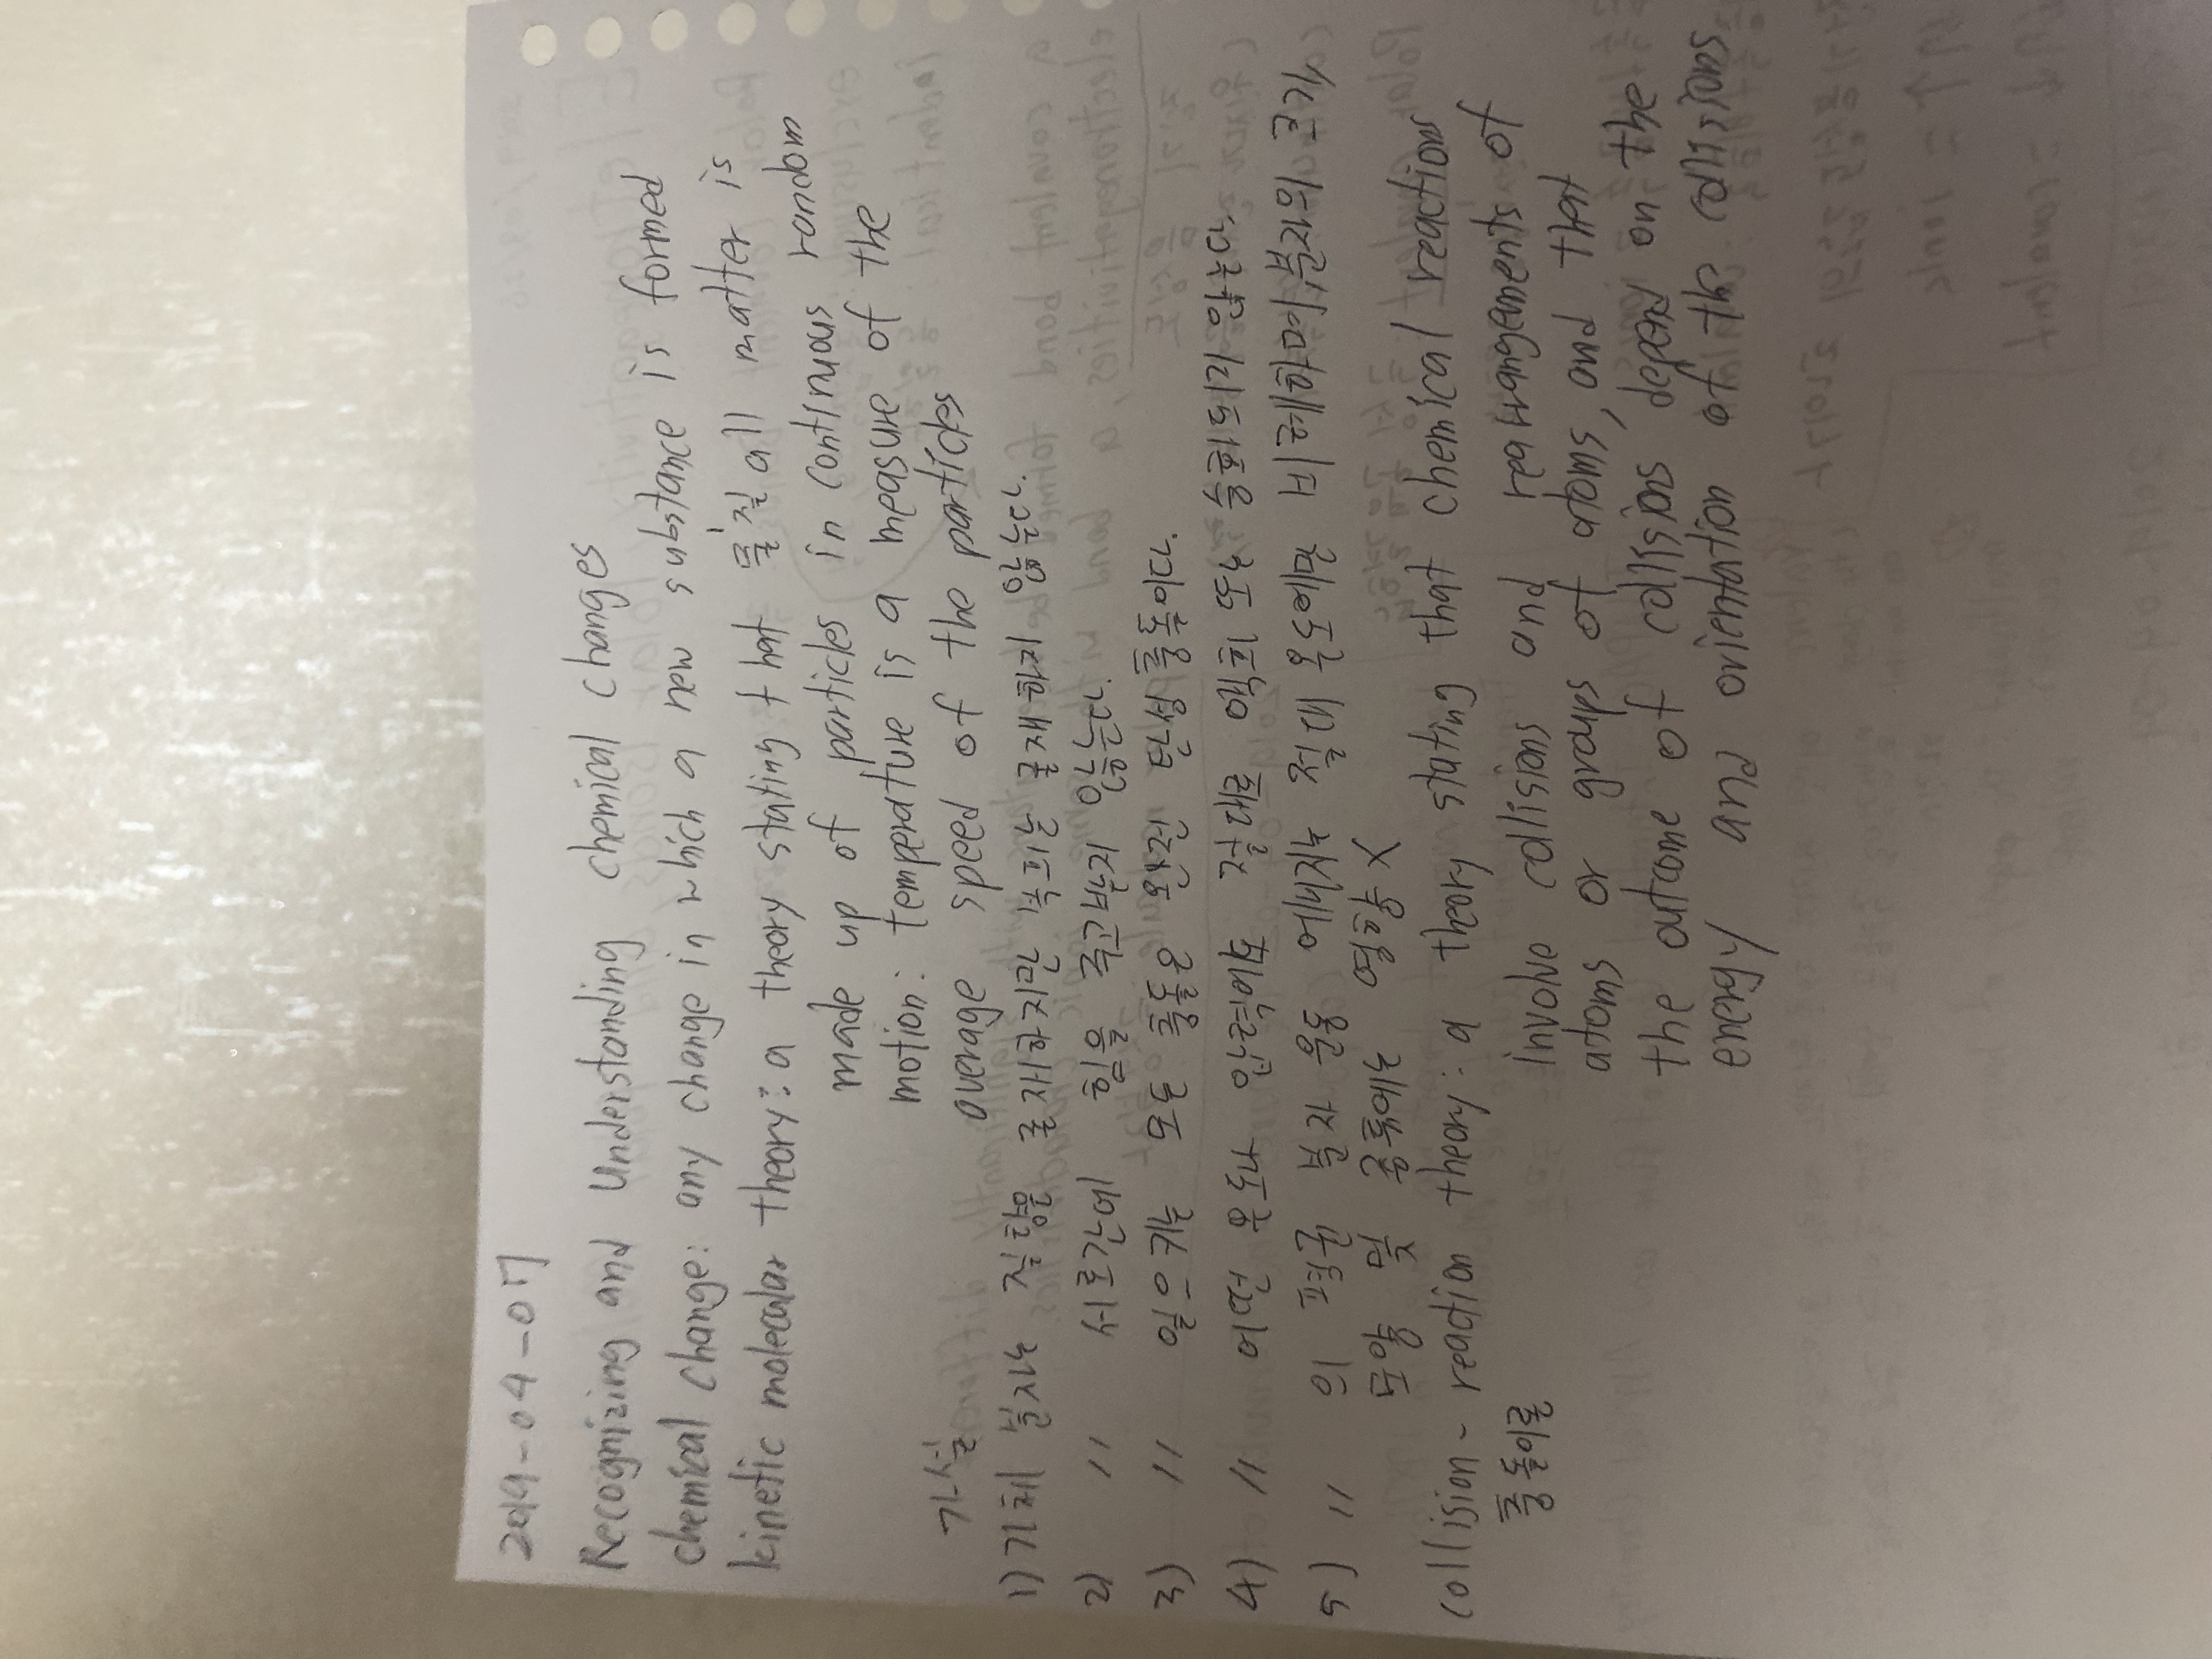 2019-04-07
Recognizing and Understanding chemical changes
chemical change: any change in which a new substance is formed
kinetic molecular theory: a theory stating that 물질 all matter is
made up of particles in continuous random
motion: temperature is a measure of the
average speed of the particles
가설
1) 기체 분자는 질량은 존재하지만 부피는 존재하지 않는다.
2) 〃 서로간에 힘을 주고받지 않는다.
3) 〃 일으키는 모든 충돌은 완전 탄성 충돌이다.
4) 〃 어떤 온도나 압력에도 절대로 액화 또는 승화되지 않는다.
5) 〃 의 평균 분자 운동 에너지는 절대 온도에만 비례하며, 분자의 크기,
모양 및 종류에는 영향 X
collision-reaction theory: a theory stating that chemical reactions
충돌이론
involve collisions and rearrangements of
atoms or groups of atoms, and that
the outcome of collisions depend on the
energy and orientation of the collisions